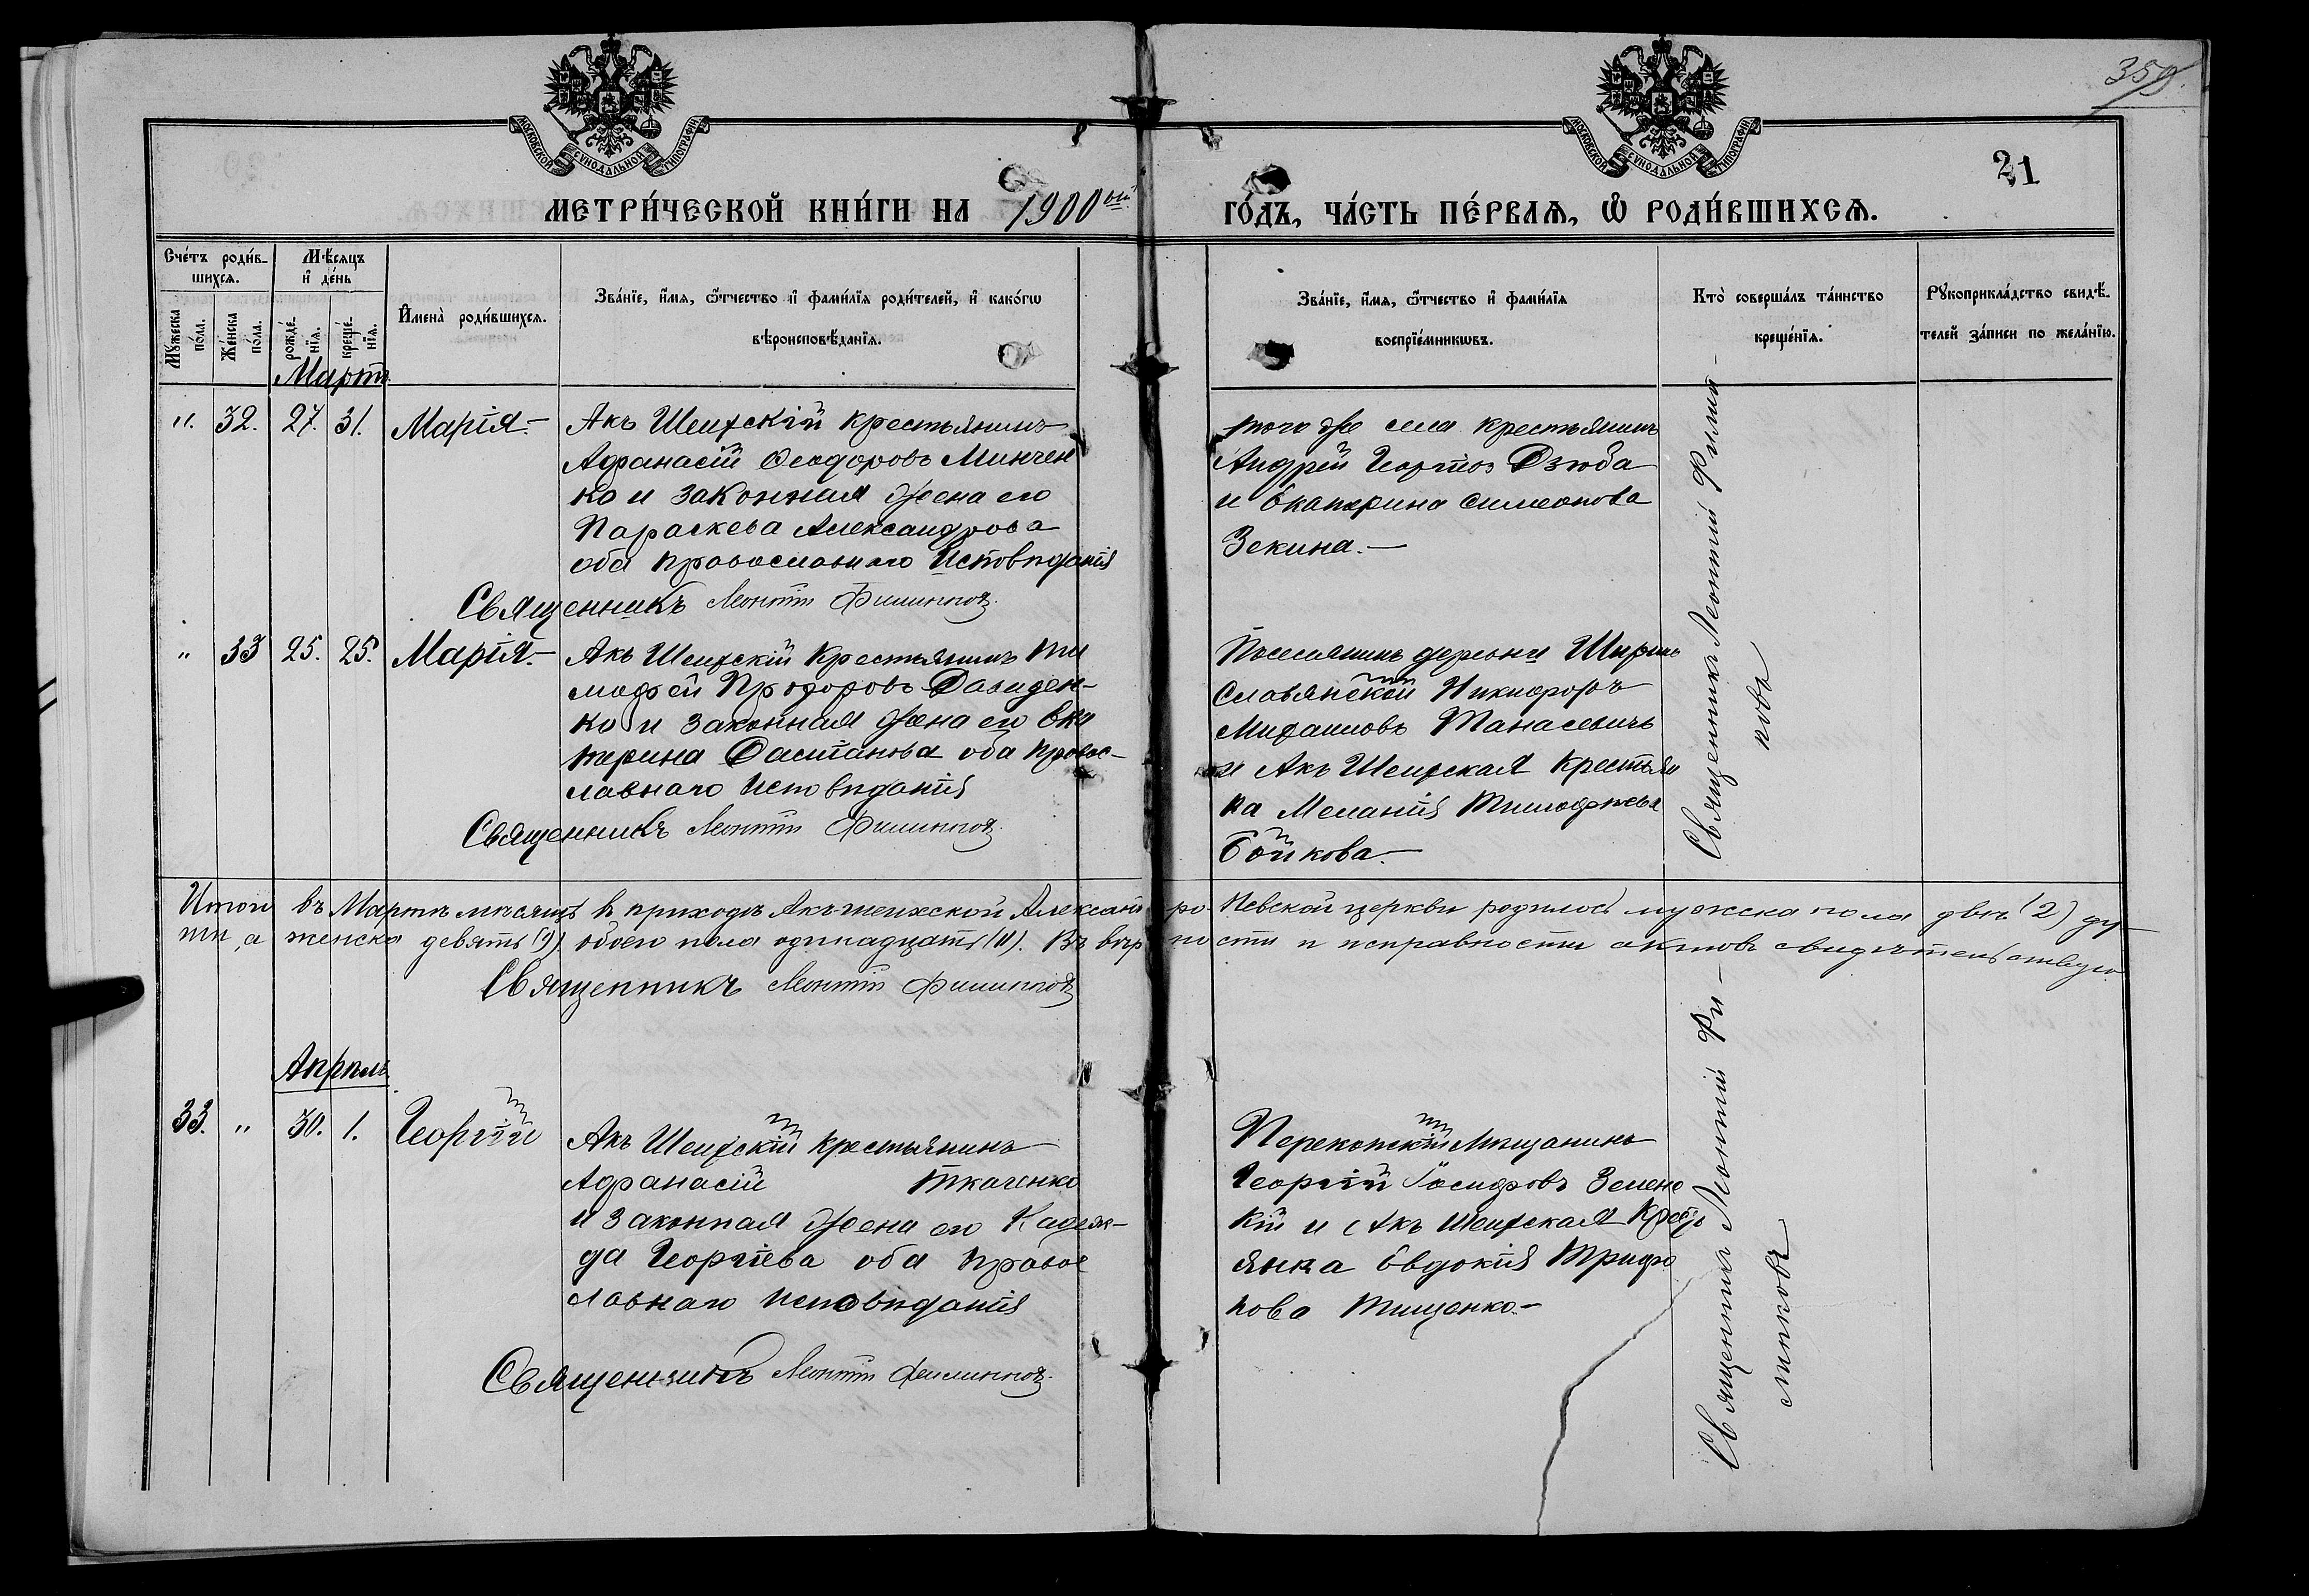 359.
21
МОСКОВСКОЙ СѴНОДАЛЬНОЙ ТИПОГРАФІИ
МОСКОВСКОЙ СѴНОДАЛЬНОЙ ТИПОГРАФІИ
МЕТРИ́ЧЕСКОЙ КНИ́ГИ НА 1900ый ГО́ДЪ, ЧА́СТЬ ПЕ́РВАѦ, Ѡ РОДИ́ВШИХСѦ.
Сче́тъ роди́в-
шихсѧ.
Мꙋ́жеска по́ла.
Же́нска по́ла.
Мѣ́сѧцъ
и҆ де́нь
рожде́-
нїѧ.
креще́-
нїѧ.
И҆мена̀ роди́вшихсѧ.
Зва́нїе, и҆́мѧ, ѻ҆́тчество и҆ фами́лїѧ роди́телей, и҆ како́гѡ
вѣроисповѣ́данїѧ.
Зва́нїе, и҆́мѧ, ѻ҆́тчество и҆ фами́лїѧ
воспрїе́мникѡвъ.
Кто̀ соверша́лъ та́инство
креще́нїѧ.
Рꙋкоприкла́дство свидѣ́-
телей за́писи по жела́нїю.
Мартъ.
". 32. 27. 31. Марія.–
Акъ Шеихскій крестьянинъ
Афанасій Ѳеодоровъ Минчен
ко и законная жена его
Параскева Александрова
оба православнаго Исповѣданія
Священникъ Леонтій Филипповъ.
того же села крестьянинъ
Андрей Дзюба
и Екатерина Симеонова
Зекина.–
Священникъ Леонтій Филип-
повъ
" 33 25. 25. Марія.–
Акъ Шеихскій Крестьянинъ Ти
мофей Прохоровъ Давиден-
ко и законная жена его Ека
терина оба правос-
лавнаго исповѣданія
Священникъ Леонтій Филипповъ.
Поселянинъ деревни
Славянской Никифоръ
Михаиловъ Танасевичъ
и Акъ Шеихская крестьян
ка Меланія Тимофѣева
Бойкова.–
Итого въ Мартѣ мѣсяцѣ в приходѣ Акъ-шеихской Александро-Невской церкви родилось мужска пола двѣ (2) ду-
ши, а женска девять (9) обоего пола одинадцать (11). Въ вѣрности и исправности актовъ свидѣтельствую
Священникъ Леонтій Филипповъ
Апрѣль.
33. " 30. 1. Георгій
Акъ Шеихскій Крестьянинъ
Афанасій Ткаченко
и законная жена его Надеж-
да Георгіева оба правос
лавнаго исповѣданія
Священникъ Леонтій Филипповъ.
Перекопскій Мѣщанинъ
Георгій Іосифовъ Зелено
кій и Акъ Шеихская Кресть
янка Евдокія Трифо
нова Тищенко.–
Священникъ Леонтій Фи-
липповъ